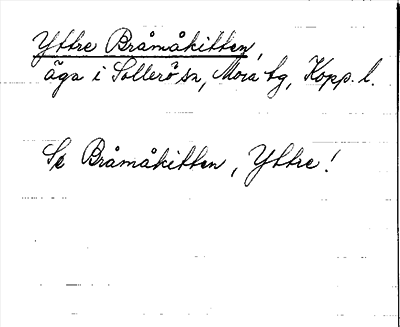 Yttre Bråmåkitten,
äga i Sollerö sn, Mora tg, Kopp. l.
Se Bråmåkitten, Yttre!